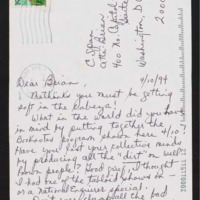 C Span
Attn: Brian
400 No. Capitol
Suite
Washington, D.C.
2000
Dear Brian, 4/10/94
Methinks you must be getting
soft in the cabeza!
What in the world did you have
in mind by putting together the
Booknotes program shown here 4/10?
Have you lost your collective minds
by producing all the "dirt" on well
known people? Good grief, I thought
I had on the tabloid shows on
or a National Enquirer special.
Don't you clap all the bad